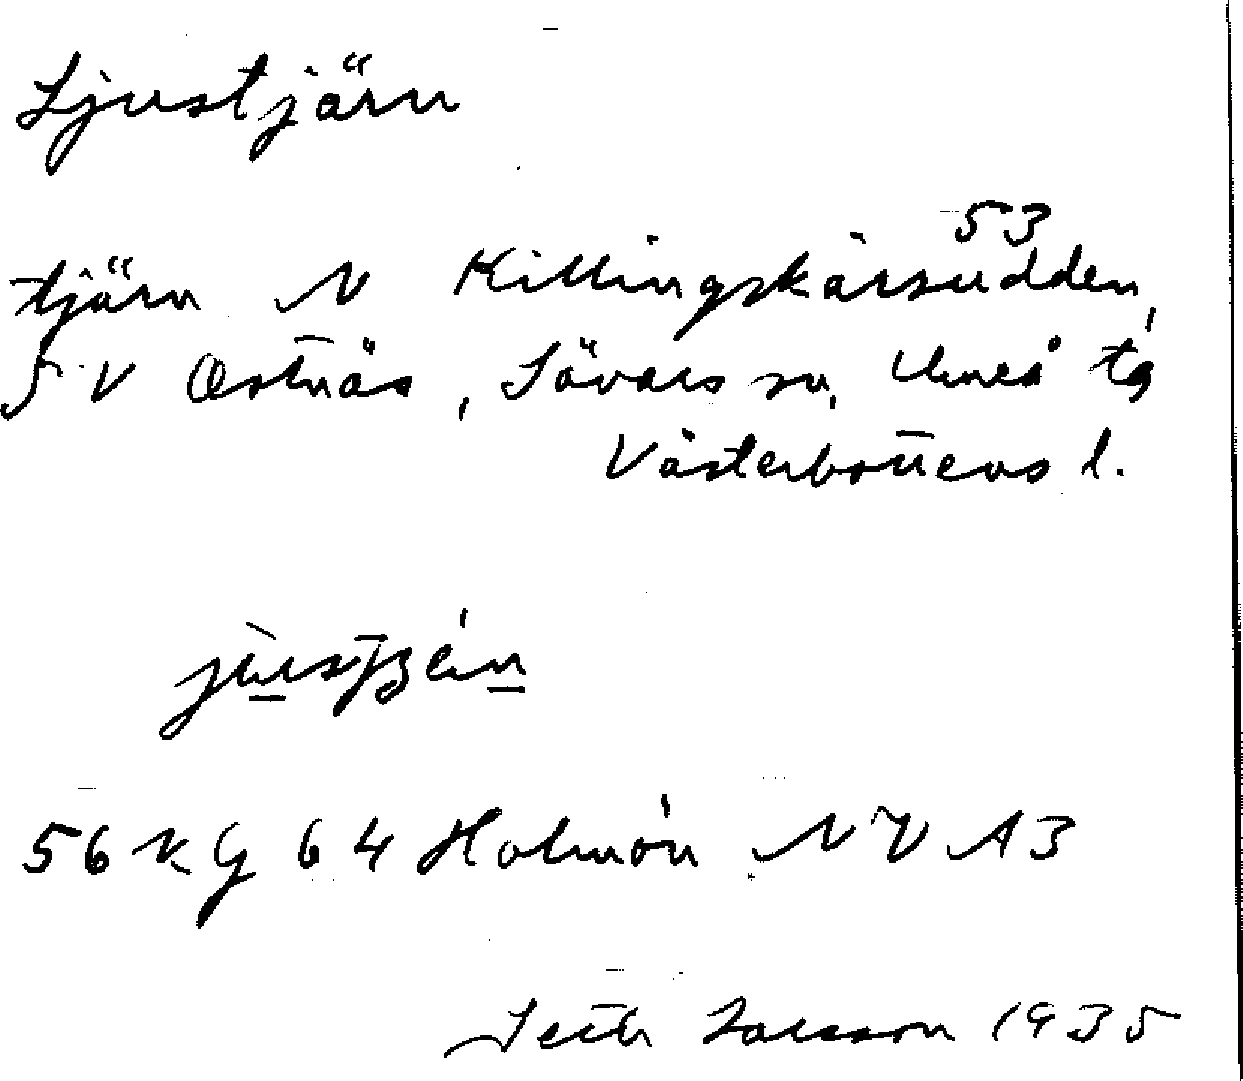 Ljustjärn
53
tjärn N Killingskärsudden,
SV Östnäs, Sävars sn, Umeå tg
Västerbottens l.
56 KG 64 Holmön NV A3
Seth Larsson 1935